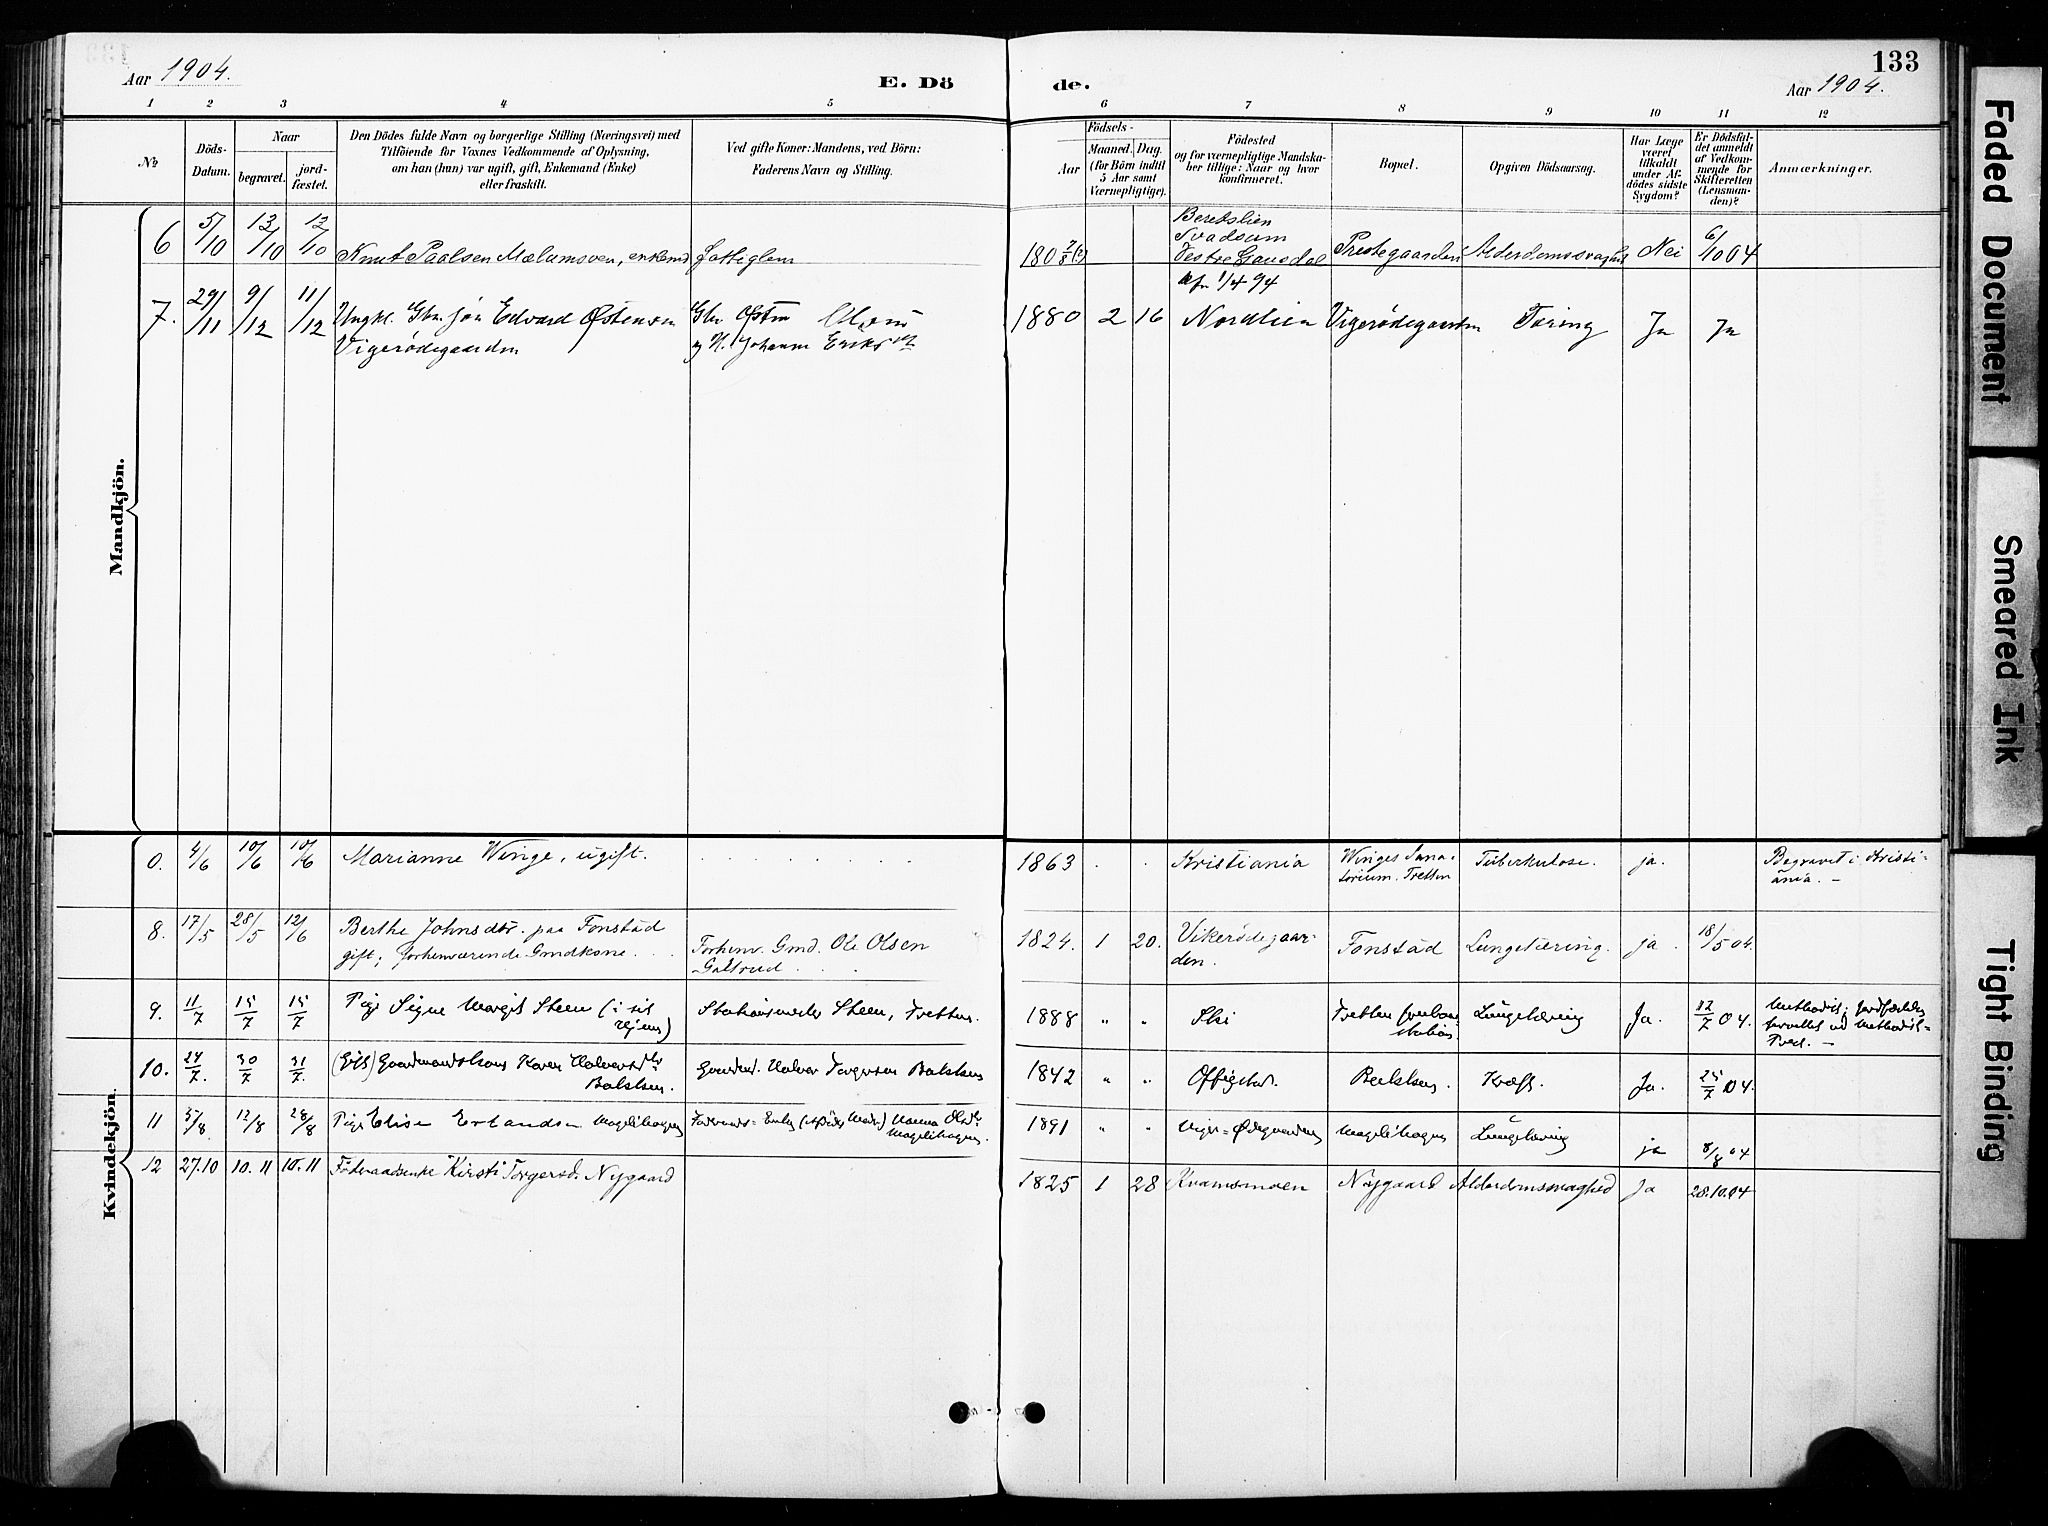 133
Aar 1904.
E. Dö
de.
Aar 1904.
1 2 3 4 5 6 7 8 9 10 11 12
No
Döds-
Datum.
Naar
begravet.
jord-
fæstet.
Den Dödes fulde Navn og borgerlige Stilling (Næringsvei) med
Tilföiende for Voxnes Vedkommende af Oplysning,
om han (hun) var ugift, gift, Enkemand (Enke)
eller fraskilt.
Ved gifte Koner: Mandens, ved Börn:
Faderens Navn og Stilling.
Födsels-
Aar
Maaned. Dag.
(for Börn indtil
5 Aar samt
Værnepligtige).
Födested
og for værnepligtige Mandska-
ber tillige: Naar og hvor
konfirmeret.
Bopæl.
Opgiven Dödsaarsag.
Har Læge
været
tilkaldt
under Af-
dödes sidste
Sygdom?
Er Dödsfal-
det anmeldt
af Vedkom-
mende for
Skifteretten
(Lensman-
den)?
Anmærkninger.
Mandkjön.
6 5/10 12/10 12/10 Knut Paalsen Mælumsven, enkemd fattiglem 1808 Svadsum
Vestre Gausdal Prestegaarden Alderdomssvaghed Nei 6/10 04
7. 29/11 9/12 11/12 Ungkl. Gbr. Jon Edvard Østensen
Vigerødegaarden
Gbr Østen Olsen
og H. Johanne Eriks
1880 2 16 kfr 1/4 94
Nordlien Vigerødegaarden Tæring Ja Ja
Kvindekjön.
0. 4/6 10/6 10/6 Marianne Winge, ugift. 1863 Kristiania Winges Sana-
torium. Tretten Tuberkulose. ja. Begravet i Kristi-
ania. -
8. 17/5 28/5 12/6 Berthe Johnsdtr. paa Fonstad
gift; forhenværende Gmdkone.
Forhenv. Gmd. Ole Olsen
Galtrud
1824. 1 20. Vikerødegaar-
den. Fonstad Lungetæring. ja. 18/5 04.
9. 11/7 15/7 15/7 Pige Signe Margit Steen (i sit
Stationsmester Steen, Tretten. 1888 " " Ski Tretten
station Lungetæring Ja. 12/7 04. Methodist; Jordfæstelse
forrettet ved Methodist-
Præd. -
10. 24/7. 30/7 31/7. (Gift) Gaardmandskone Karen Halvorsdtr
Balsksen.
Gaardmd. Halvor Torgersen 1842 " " Offigstad. Kræft. Ja. 25/7 04.
11 5/8. 12/8 28/8 Pige Elise Erlandsen Magelihagen
Magelihagen.
1891 " " Viger-Ødegaarden Magelihagen Lungetæring ja 8/8 04
12 27.10 10.11 10.11 Føderaadsenke Kirsti Torgersd. Nygaard 1825 1 28 Kvamsmoen Nygaard Alderdomssvaghed Ja 28.10.04
Faded Document
Smeared Ink
Tight Binding